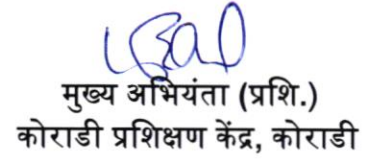 मुख्य अभियंता (प्रशि.)
कोराडी प्रशिक्षण केंद्र, कोराडी